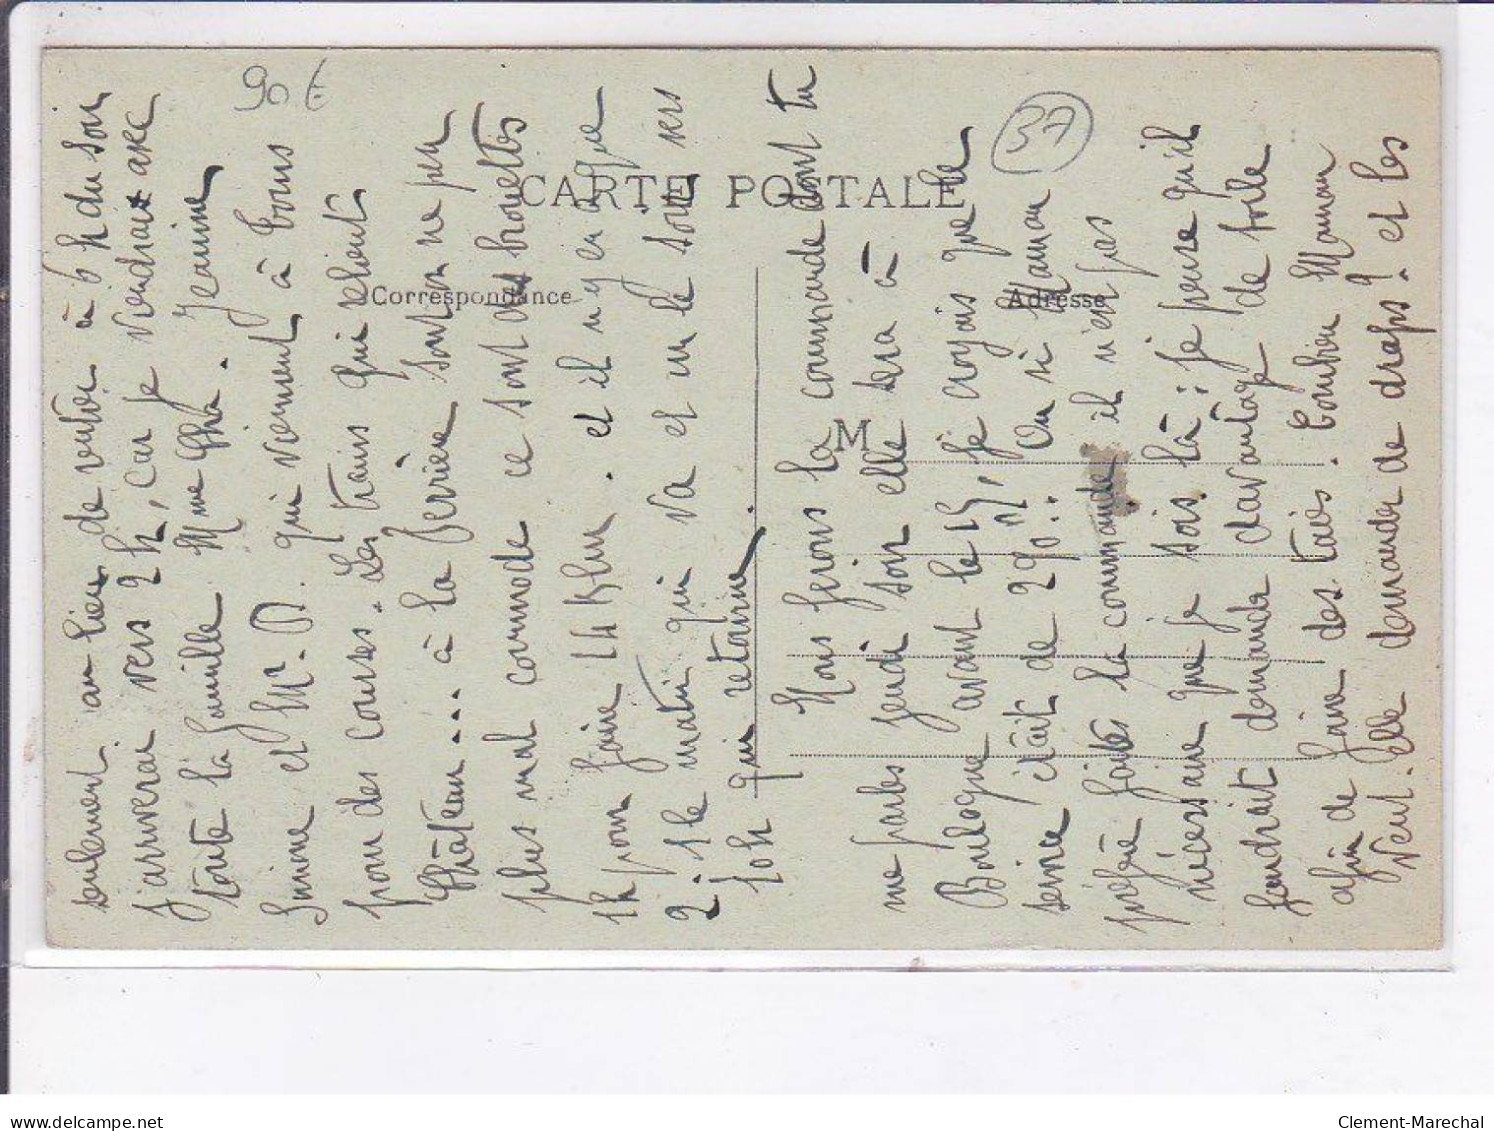 seulement au lieu de rentrer à 6 h du soir
j'arriverai vers 2 h, car je viendrai avec
toute la famille Mme Cha. Jeanine
Simone et Mr. D. qui viennent à Tours
pour des courses. Les trains qui relient
Château.... à la Ferrière sont on ne peu
plus mal commode ce sont des brouettes
1h pour faire 14 Klm. et il n'y en a que
2. 1 le matin qui va et un le soir vers
10h qui retourne.
Nous ferons la commande dont tu
me parles jeudi soir elle sera à
Boulogne avant le 15, je croyais que le
service était de 290.. Ou si Maman
préfère faites la commande il n'est pas
nécessaire que je sois là : je pense qu'il
faudrait demander davantage de toile
afin de faire des taies. Combien Maman
veut-elle demander de draps? et les
CARTE POSTALE
Correspondance
Adresse
M
90 €
37
delcampe.net
Clement-Marechal